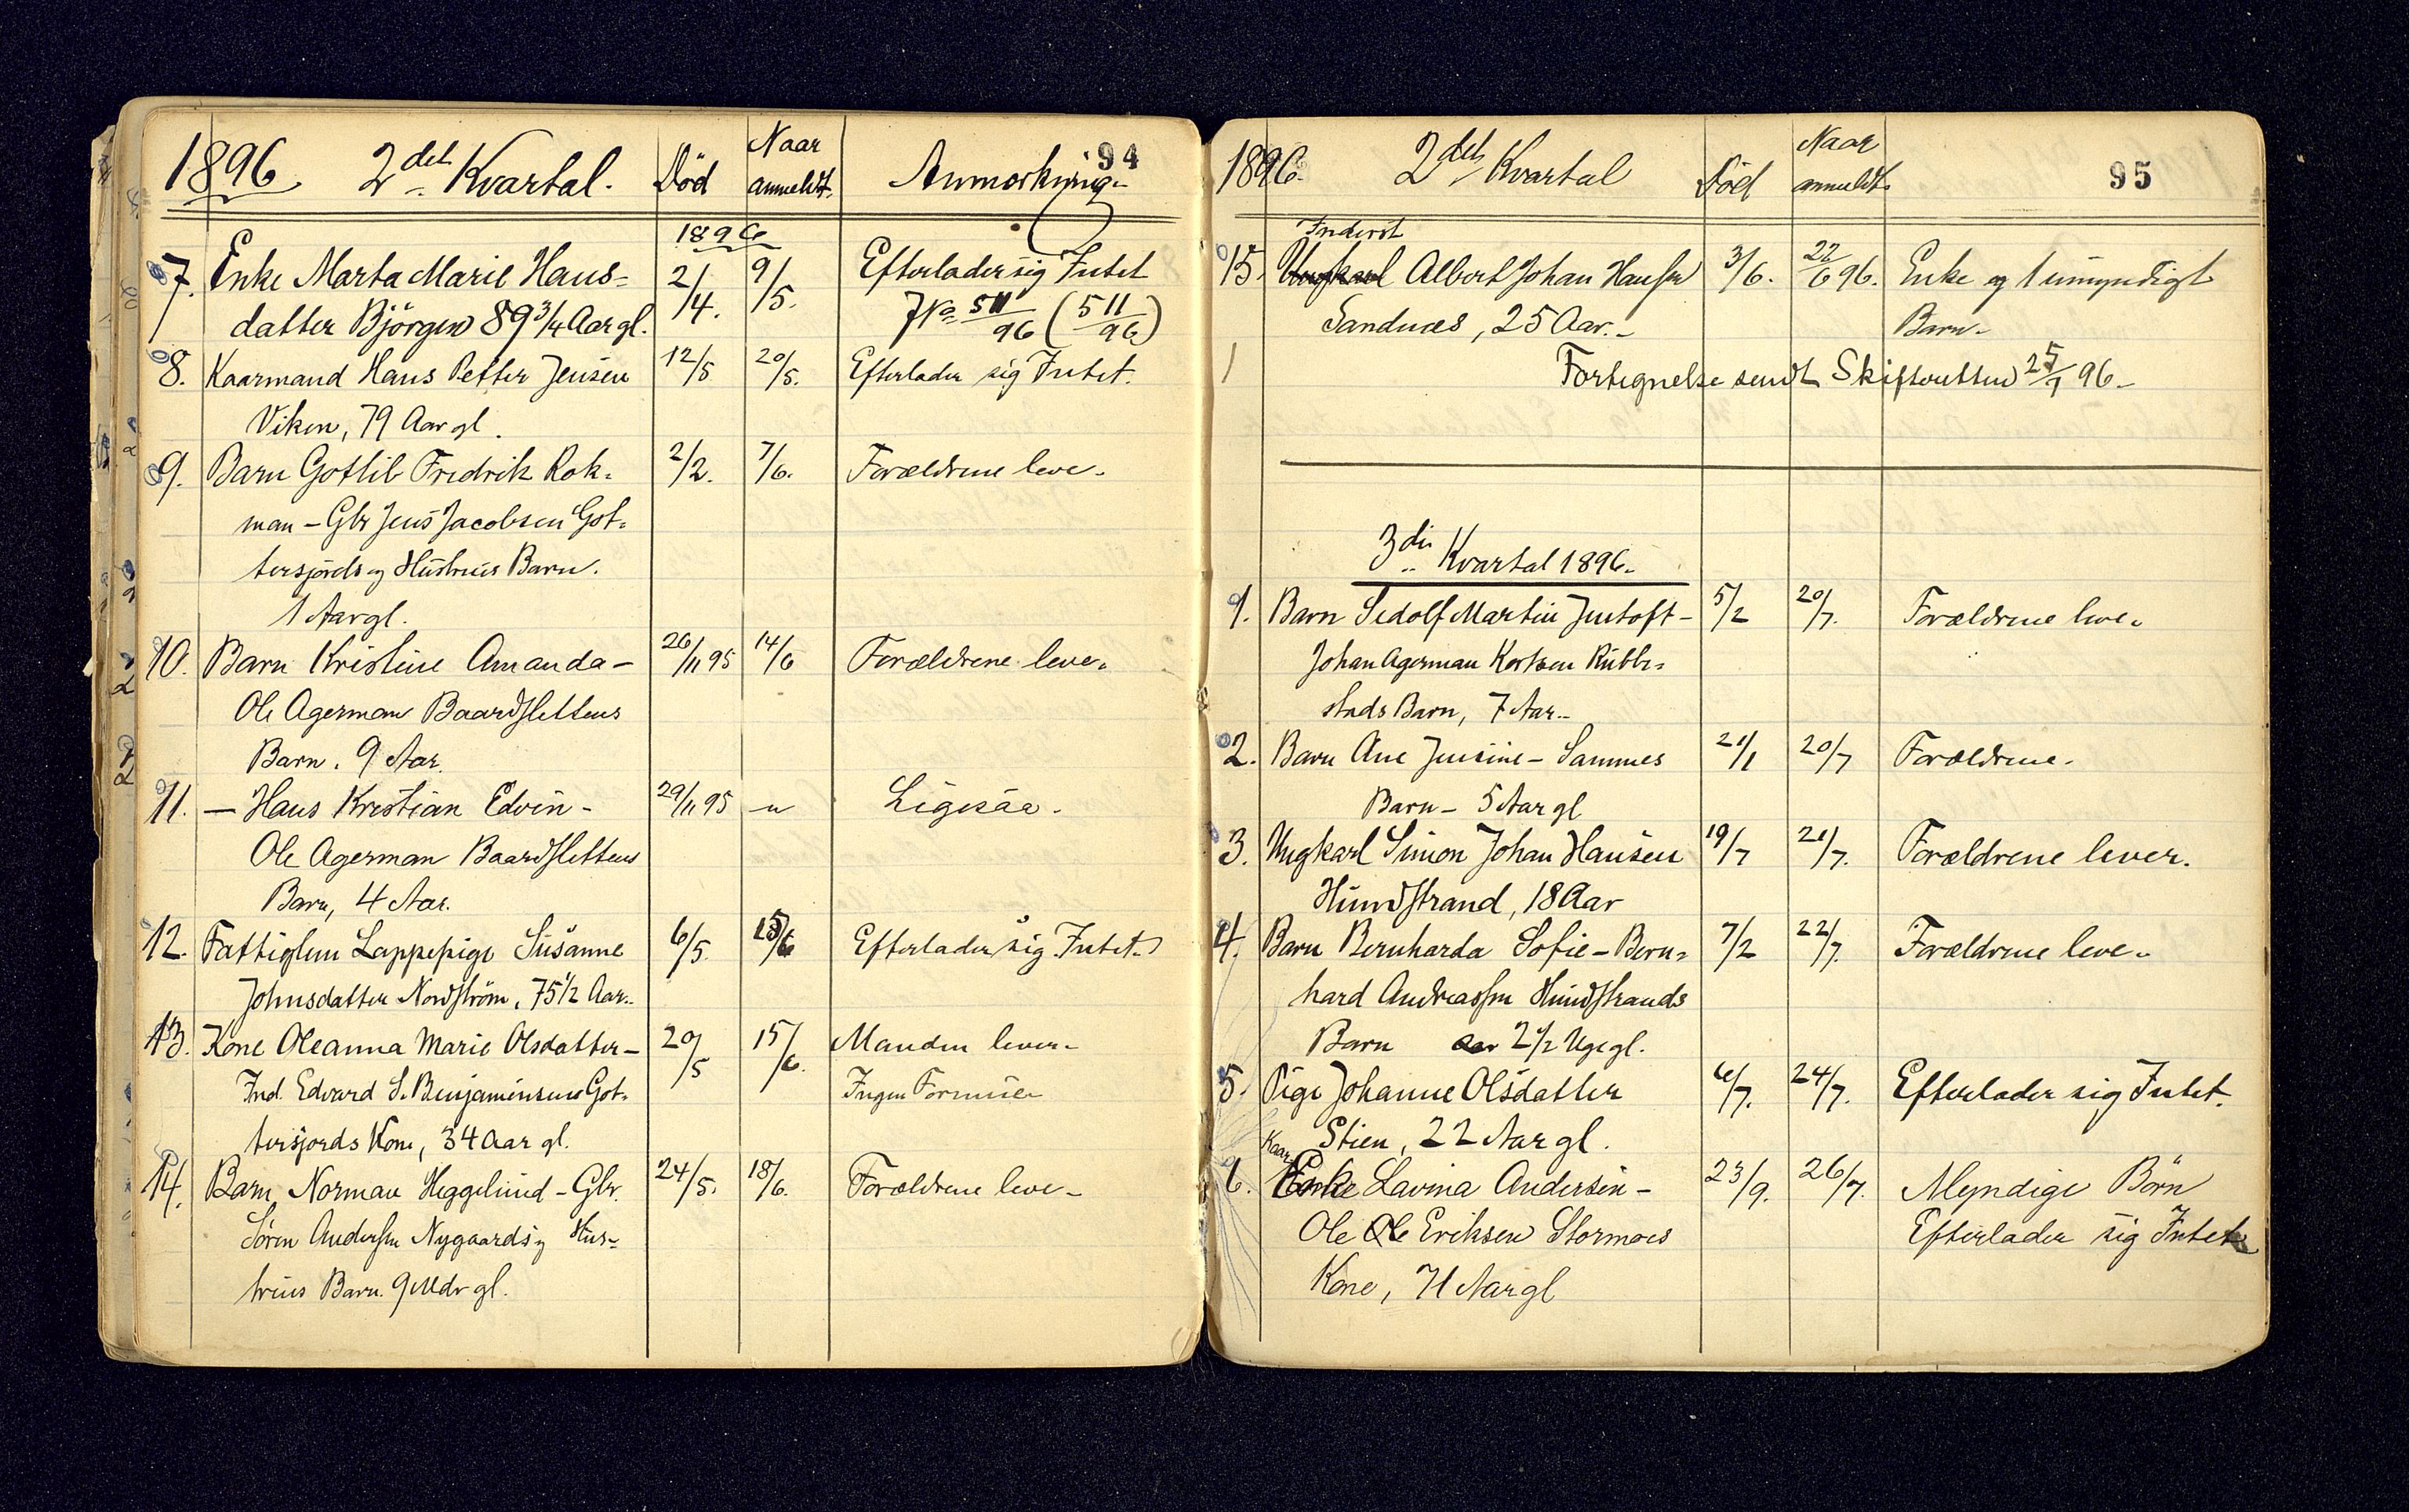 1896 2det Kvartal. Död Naar anmeldt. Anmærkning. 94
1896
7. Enke Marta Marie Hans= 2/4. 9/5. Efterlader sig Intet
datter Björgen 89 3/4 Aar gl. JNo 511/96 (511/96)
8. Kaarmand Hans Petter Jensen 12/5 20/5. Efterlader sig Intet.
Viken, 79 Aar gl.
9. Barn Gottlib Fredrik Rok= 2/2. 7/6. Forældrene leve.
man - Gbr Jens Jacobsen Got=
tersjords og Hustrues Barn.
1 Aar gl.
10. Barn Kristine Amanda - 26/11 95 14/6 Forældrene leve.
Ole Agerman Baardslettens
Barn. 9 Aar.
11. — Hans Kristian Edvin - 29/11 95 — " Ligesaa.
Ole Agerman Baardslettens
Barn, 4 Aar.
12. Fattiglem Lappepige Susanne 6/5. 15/6 Efterlader sig Intet.
Johnsdatter Nordström, 75 1/2 Aar.
13. Kone Oleanna Marie Olsdatter - 20/5 15/6. Manden lever.
Ind. Edvard S. Benjaminsens Got= Ingen Formue
tersjords Kone, 34 Aar gl.
14. Barn Norman Heggelund - Gbr. 24/5. 18/6. Forældrene leve -
Sören Andersen Nygaards og Hus=
trues Barn. 9 Mdr gl.
1896. 2det Kvartal Död Naar anmeldt. 95
Inderst
15. Ungkarl Albert Johan Hansen 3/6. 22/6 96. Enke og 1 umyndigt
Sandnæs, 25 Aar. - Barn -
Fortegnelse sendt Skifteretten 25/9 96 -
3die Kvartal 1896.
1. Barn Sedolf Martin Justoft - 5/2 20/7. Forældrene leve.
Johan Agerman Kortsen Rubbe=
stads Barn, 7 Aar. -
2. Barn Ane Jensine - Sammes 21/1 20/7 Forældrene.
Barn - 5 Aar gl
3. Ungkarl Simon Johan Hansen 19/7 21/7. Forældrene lever.
Hundstrand, 18 Aar
4. Barn Bernharda Sofie - Bern= 7/2 22/7. Forældrene leve.
hard Andreassen Hundstrands
Barn Aar 2 1/2 Uge gl.
5. Pige Johanne Olsdatter 6/7. 24/7. Efterlader sig Intet.
Stien, 22 Aar gl.
Kaar
6. Enke Lavina Andersen - 23/9. 26/7. Myndige Börn
Ole Ole Eriksen Stormoes Efterlader sig Intet
Kone, 71 Aar gl